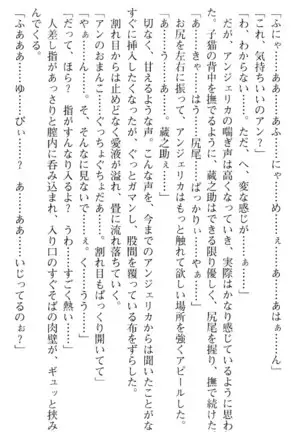 「ふにゃ……あぁ……にゃ……め……ぇ……あ……はぁ……ん」
「これ、気持ちいいのアン？」
「わ、わからない……。ただ、へ、変な感じが……」
だが、アンジェリカの喘ぎ声は高くなっていき、実際はかなり感じているように思わ
れた。子猫の背中を撫でるように、蔵之助はできる限り優しく、尻尾を握り、撫で続けた。
「あ……きゃ……はう……尻尾……ばっかりぃ……やぁ……」
お尻を左右に振って、アンジェリカはもっと触れて欲しい場所を強くアピールした。
「あ……う……あ……。蔵之助ぇ……」
切なく、甘えるような声。こんな声を、今までのアンジェリカからは聞いたことがな
すぐに挿入したくなったが、ぐっとガマンし、股間を覆っている布をずらした。
割れ目からは止めどなく愛液が溢れ、畳に流れ落ちていく。
「アンのおまんこ……ぐっちょぐちょだあ……。割れ目もぱっくり開いてて」
「やぁ……ん……。そんなに見ないで……ぇ。く……うう……」
「だって、ほら？　指がすんなり入るよ？　うわ……すごく熱い……」
人差し指があっさりと膣内に呑み込まれ、入り口のすぐそばの肉壁が、ギュッと挟み
んでくる。
「ふああ……ゆ……び……？　あ……ああ……いじってるのぉ？」